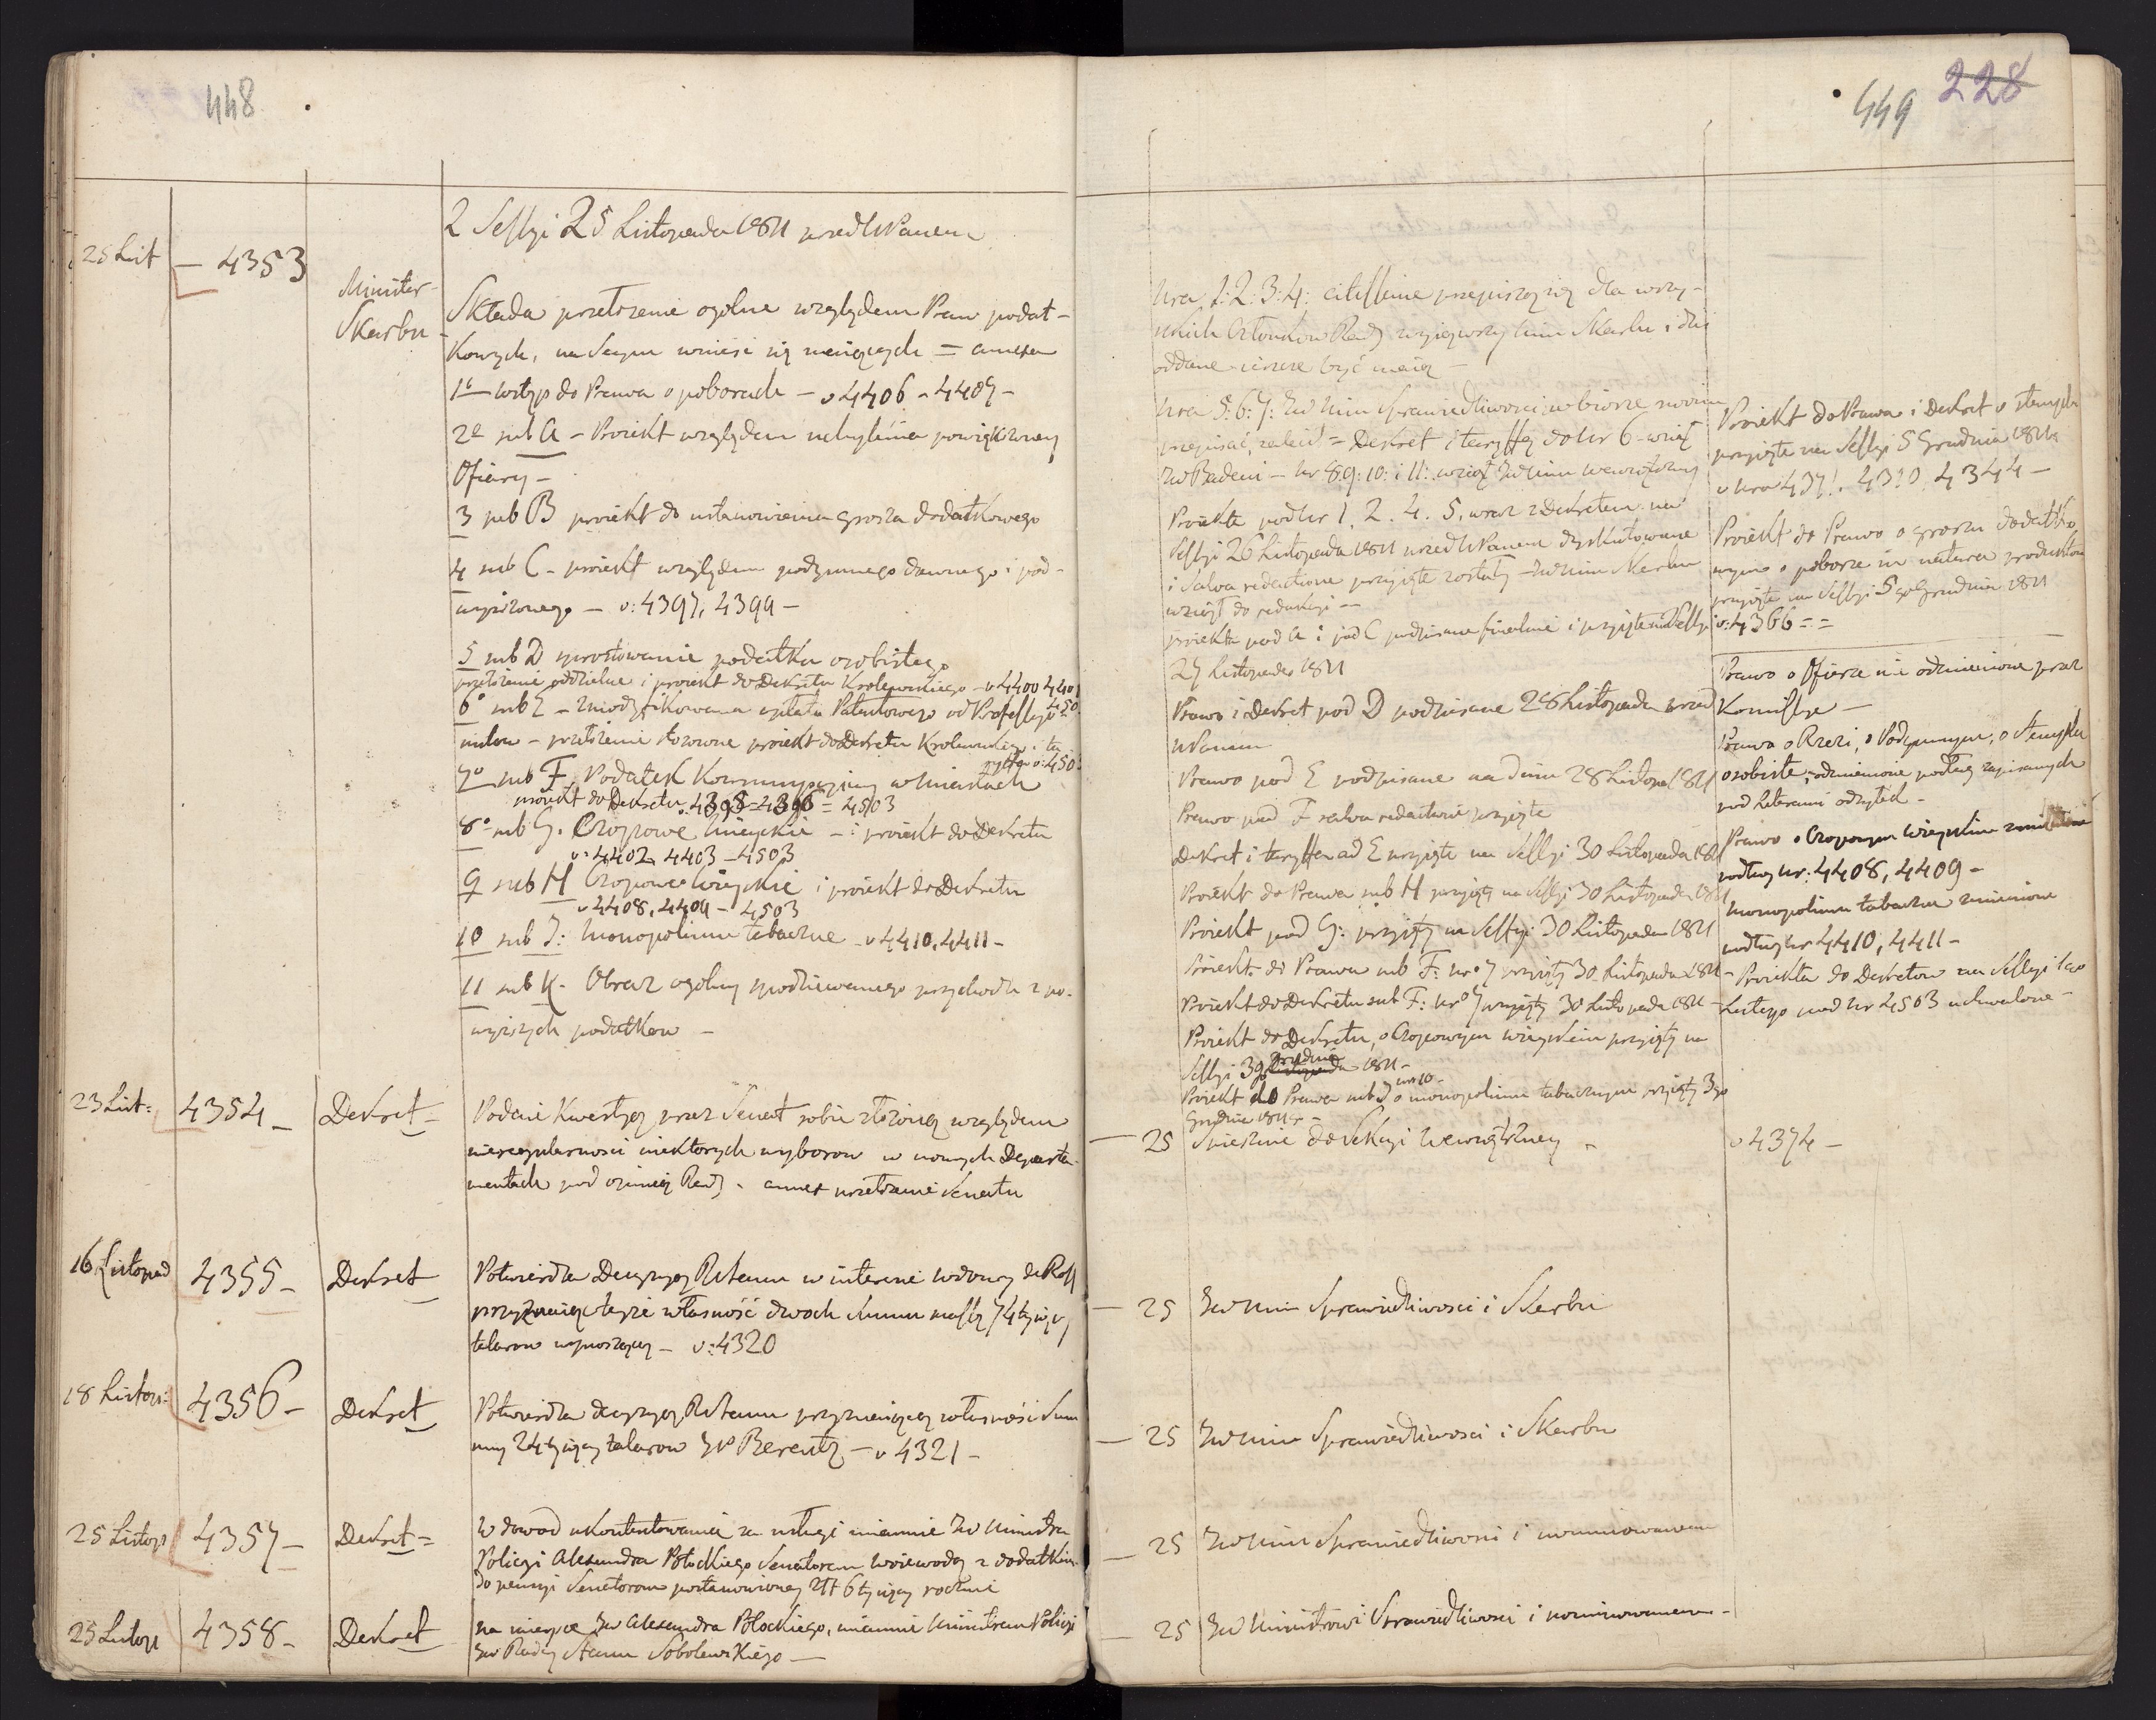 448
2 Sessyi 25 Listopada 1811 przed NPanem
25 List — 4353
Minister
Skarbu
Składa przełożenie ogólne względem Praw podat-
kowych, na Seym wnieść się maiących = annexa
1o wstęp do Prawa o poborach — v 4406 - 4407 -
2o sub A - Proiekt względem uchylenia powiększoney
Ofiary -
3 sub B proiekt do ustanowienia grosza dodatkowego
4 sub C - proiekt względem podymnego dawnego i pod-
wyższonego — v: 4397, 4399 —
5 sub D sprostowanie podatku osobistego
przełożenie oddzielne i proiekt do Dekretu Krolewskiego - v 4400 4401
6o sub E - zmodyfikowania opłatu Patentowego od Professyo-
nałow - przełożenie stosowne proiekt do Dekretu Krolewskiego i ta-
ryffa v: 450
7o sub F, Podatek Konsumpcyiny w Miastach
proiekt do Dekretu v. 4395 = 4396 = 4503
8o sub G. Czopowe Mieyskie - i proiekt do Dekretu
v: 4402, 4403 - 4503
9 sub H Czopowe Wieyskie i proiekt do Dekretu
v 4408, 4409 - 4503
10 sub I: Monopolium tabaczne - v 4410, 4411 -
11 sub K. Obraz ogolny spodziewanego przychodu z po-
wyższych podatkow -
23 List: 4354 - Dekret =
Podanie kwestyą przez Senat sobie złożoną względem
nieregularności niektorych wyborow w nowych Departa-
mentach pod opinią Rady - annex przełożenie Senatu
16 Listopad 4355 - Dekret
Potwierdza Decyzyą RStanu w interesie wdowy de
przyznaiąc teyże własność dwoch summ 74 tysięcy
talarow wynoszącey - v: 4320
18 Listop: 4356 - Dekret
Potwierdza decyzyą RStanu przyznaiącą własności Sum
my 24 tysięcy talarow JP Berentz - v 4321 -
25 Listop 4357 - Dekret =
W dowod ukontentowania za usługi mianuie JW Ministra
Policyi Alexandra Potockiego Senatorem Woiewodą z dodatkiem
do pensyi Senatorom postanowioney Złt 6 tysięcy rocznie
25 Listop 4358 - Dekret
na mieysce JW Alexandra Potockiego, mianuie Ministrem Policyi
JW Radcę Stanu Sobolewskiego —
449 228
Nra 1: 2: 3: 4: citissime przepiszą się dla wszy-
stkich Członkow Rady wyiąwszy Min Skarbu i dziś
oddane ieszcze być maią -
Nra 5: 6: 7: JW Min Sprawiedliwosci w biorze swoim
przepisać zalecił = Dekret i taryffę do Nr 6 wziął
JW Badeni - Nr 8: 9: 10: i 11: wziął JW Min wewnętrzny
Proiekta pod Nr 1. 2. 4. 5. wraz z Dekretem na
Sessyi 26 Listopada 1811 przed NPanem dyskutowane
i salva redactione przyięte zostały - JW Min Skarbu
wziął do redakcyi -
proiekta pod A i pod C podpisane finalnie i przyięte na Sessyi
27 Listopada 1811
Prawo i Dekret pod D podpisane 28 Listopada przed
NPanem
Prawo pod E podpisane na dniu 28 Listopa 1811
Prawo pod F salva redactione przyięte
Dekret i taryffa ad E przyięte na Sessyi 30 Listopada 1811
Proiekt do Prawa sub H przyięty na Sessyi 30 Listopada 1811
Proiekt pod G: przyięty na Sessyi 30 Listopada 1811
Proiekt do Prawa sub F: nro 7 przyięty 30 Listopada 1811 -
Proiekt do Dekretu sub F: Nro 7 przyięty 30 Listopada 1811 -
Proiekt do Dekretu, o Czopowym wieyskim przyięty na
Sessyi 3go Listopada Grudnia 1811 -
Proiekt do Prawa sub I nro 10 - o monopolium tabacznym przyięty 3go
Grudnia 1811 r -
Proiekt do Prawa i Dekret o stemplu
przyięte na Sessyi 5 Grudnia 1811
v Nra 4371. 4310. 4344 -
Proiekt do Prawa o groszu dodatko
wym o poborze in natura produktow
przyięte na Sessyi 5go Grudnia 1811
v: 4366 = =
Prawo o Ofierze nie odmienione przez
Komissye -
Prawa o Rzezi, o Podymnym, o Stemplu
osobiste, odmienione podług zapisanych
pod Literami odsyłek -
Prawo o Czopowym Wieyskim zmienione
podług Nr: 4408, 4409 -
Monopolium tabaczne zmienione
podług Nr 4410, 4411 -
- Proiekta do Dekretow na Sessyi 1go
Lutego pod Nr 4503 uchwalone -
— 25 Spiesznie do Sekcyi Wewnętrzney - v 4374 -
— 25 JW Min Sprawiedliwosci i Skarbu
— 25 JW Min Sprawiedliwosci i Skarbu
— 25 JW Min Sprawiedliwosci i nominowanemu
— 25 JW Ministrowi Sprawiedliwosci i nominowanemu -